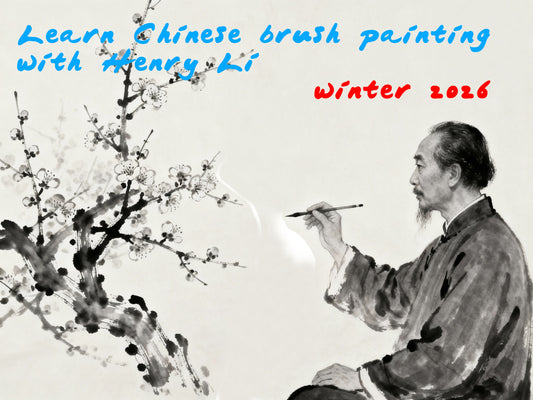 Learn Chinese brush painting
with Henry Li
winter 2026